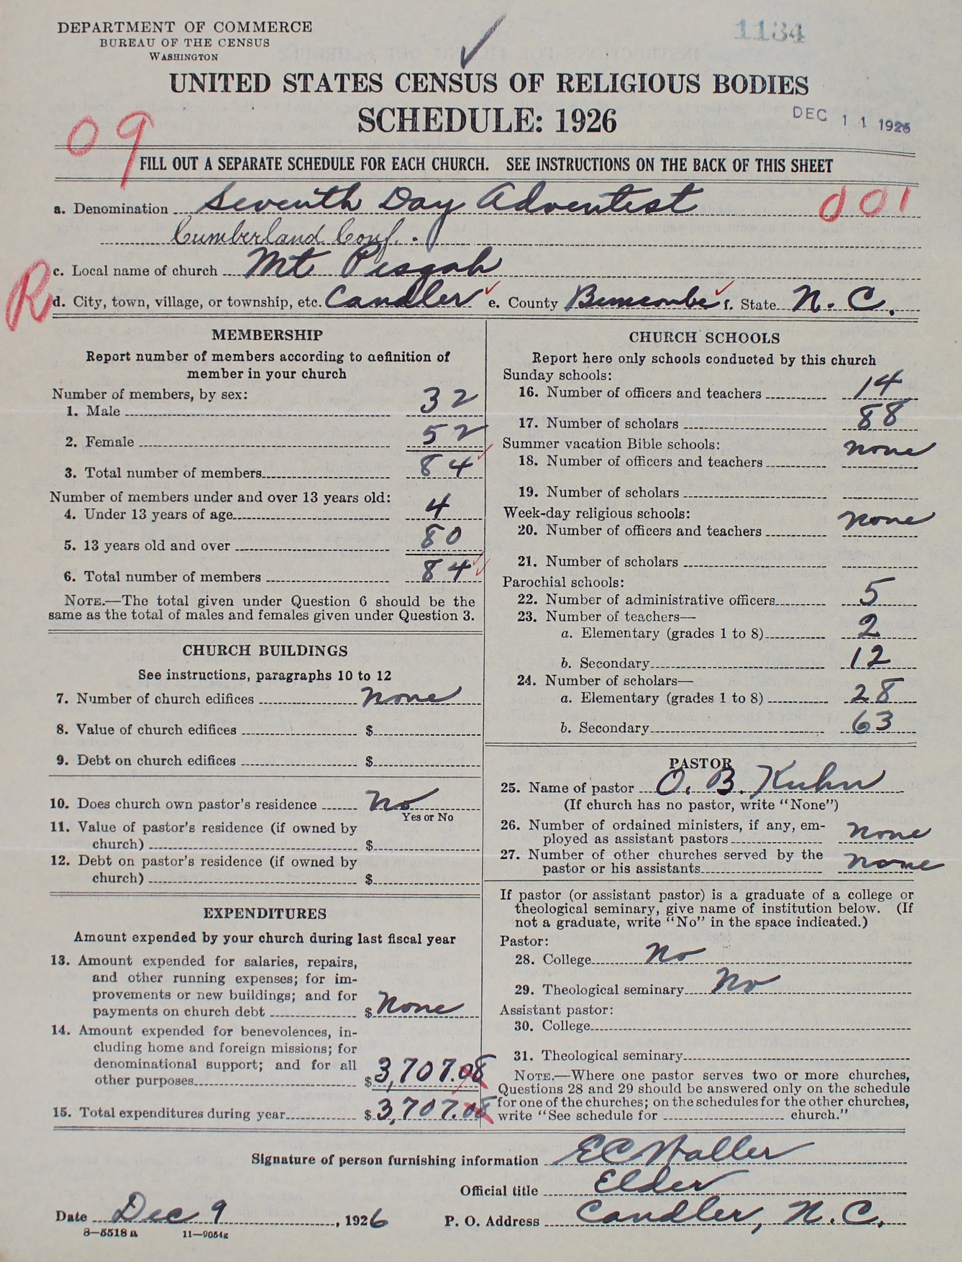 DEPARTMENT OF COMMERCE
BUREAU OF THE CENSUS
WASHINGTON
1134
UNITED STATES CENSUS OF RELIGIOUS BODIES
SCHEDULE: 1926
DEC 11 1926
09
FILL OUT A SEPARATE SCHEDULE FOR EACH CHURCH. SEE INSTRUCTIONS ON THE BACK OF THIS SHEET
a. Denomination Seventh Day Adventist
001
Cumberland Conf.
c. Local name of church Mt Pisgah
R
d. City, town, village, or township, etc. Candler e. County Buncombe f. State N.C.
MEMBERSHIP
Report number of members according to definition of
member in your church
Number of members, by sex:
1. Male 32
2. Female 52
3. Total number of members 84
Number of members under and over 13 years old:
4. Under 13 years of age 4
5. 13 years old and over 80
6. Total number of members 84
NOTE.—The total given under Question 6 should be the
same as the total of males and females given under Question 3.
CHURCH BUILDINGS
See instructions, paragraphs 10 to 12
7. Number of church edifices none
8. Value of church edifices $
9. Debt on church edifices $
10. Does church own pastor's residence No
Yes or No
11. Value of pastor's residence (if owned by
church) $
12. Debt on pastor's residence (if owned by
church) $
EXPENDITURES
Amount expended by your church during last fiscal year
13. Amount expended for salaries, repairs,
and other running expenses; for im-
provements or new buildings; and for
payments on church debt $ None
14. Amount expended for benevolences, in-
cluding home and foreign missions; for
denominational support; and for all
other purposes $ 3,707.08
15. Total expenditures during year $ 3,707.08
CHURCH SCHOOLS
Report here only schools conducted by this church
Sunday schools:
16. Number of officers and teachers 14
17. Number of scholars 88
Summer vacation Bible schools:
18. Number of officers and teachers none
19. Number of scholars
Week-day religious schools:
20. Number of officers and teachers none
21. Number of scholars
Parochial schools:
22. Number of administrative officers 5
23. Number of teachers—
a. Elementary (grades 1 to 8) 2
b. Secondary 12
24. Number of scholars—
a. Elementary (grades 1 to 8) 28
b. Secondary 63
PASTOR
25. Name of pastor O. B. Kuhn
(If church has no pastor, write "None")
26. Number of ordained ministers, if any, em-
ployed as assistant pastors none
27. Number of other churches served by the
pastor or his assistants none
If pastor (or assistant pastor) is a graduate of a college or
theological seminary, give name of institution below. (If
not a graduate, write "No" in the space indicated.)
Pastor:
28. College No
29. Theological seminary No
Assistant pastor:
30. College
31. Theological seminary
NOTE.—Where one pastor serves two or more churches,
Questions 28 and 29 should be answered only on the schedule
for one of the churches; on the schedules for the other churches,
write "See schedule for church."
Signature of person furnishing information E C Waller
Official title Elder
Date Dec 9, 1926 P. O. Address Candler, N.C.
8—5518a 11—9054g